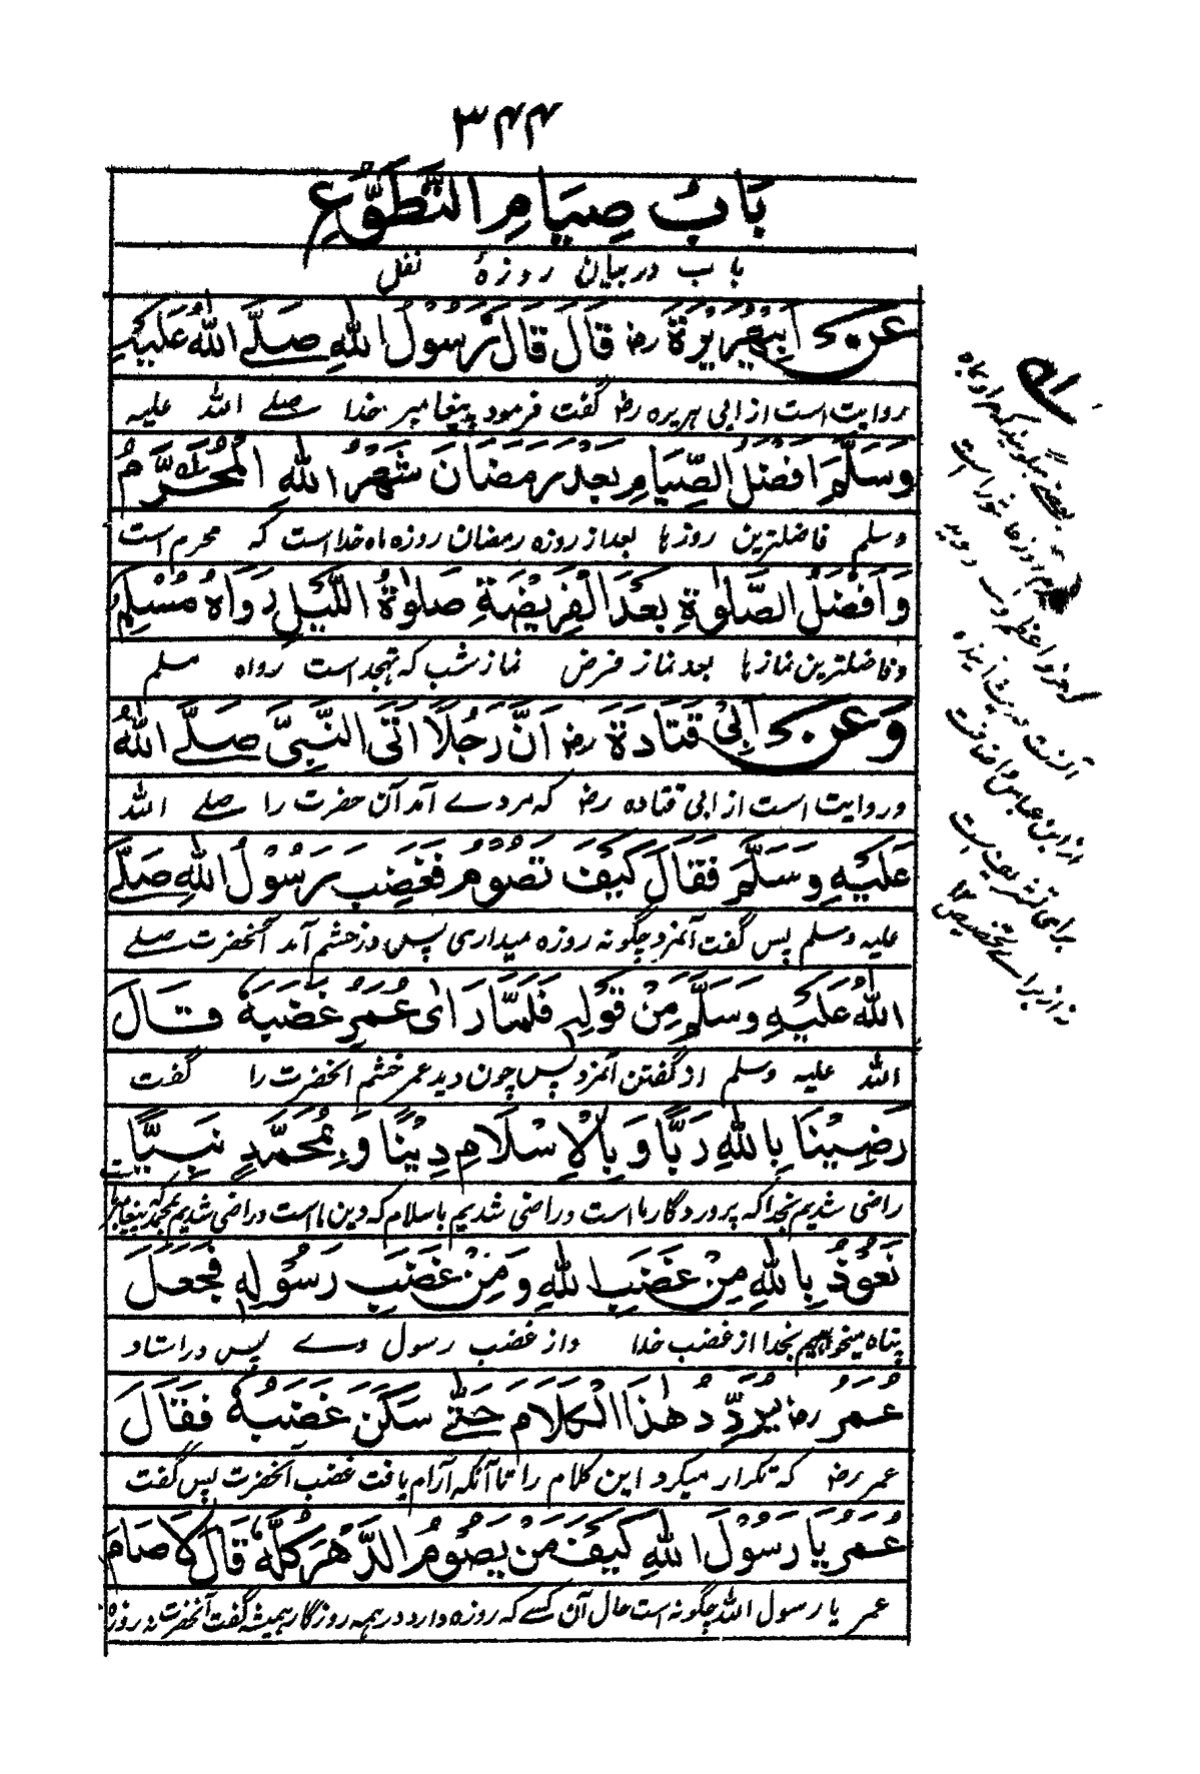 ۳۴۴
بَابُ صِيَامِ التَّطَوُّعِ
باب در بیان روزهٔ نفل
عَنْ اَبِيْ هُرَيْرَةَ رض قَالَ قَالَ رَسُوْلُ اللّٰهِ صَلَّے اللّٰهُ عَلَيْهِ
روایت است از ابی هریره رض گفت فرمود پیغامبر خدا صلے الله علیه
وَسَلَّمَ اَفْضَلُ الصِّيَامِ بَعْدَ رَمَضَانَ شَهْرُ اللّٰهِ الْمُحَرَّمُ
وسلم فاضلترین روزها بعد از روزه رمضان روزه ماه خدا است که محرم است
وَاَفْضَلُ الصَّلٰوةِ بَعْدَ الْفَرِيْضَةِ صَلٰوةُ اللَّيْلِ رَوَاهُ مُسْلِمٌ
وفاضلترین نمازها بعد نماز فرض نماز شب که تهجد است رواه مسلم
وَعَنْ اَبِيْ قَتَادَةَ رض اَنَّ رَجُلًا اَتَى النَّبِيَّ صَلَّے اللّٰهُ
وروایت است از ابی قتاده رض که مردے آمد آن حضرت را صلے الله
عَلَيْهِ وَسَلَّمَ فَقَالَ كَيْفَ تَصُوْمُ فَغَضِبَ رَسُوْلُ اللّٰهِ صَلَّے
علیه وسلم پس گفت آنمرد چگونه روزه میداری پس در خشم آمد آنحضرت صلے
اللّٰهُ عَلَيْهِ وَسَلَّمَ مِنْ قَوْلِهٖ فَلَمَّا رَاٰى عُمَرُ غَضَبَهٗ قَالَ
الله علیه وسلم از گفتن آنمرد پس چون دید عمر خشم آنحضرت را گفت
رَضِيْنَا بِاللّٰهِ رَبًّا وَبِالْاِسْلَامِ دِيْنًا وَبِمُحَمَّدٍ نَبِيًّا
راضی شدیم بخدا که پروردگار ما است وراضی شدیم باسلام که دین ما است وراضی شدیم بمحمد که پیغامبر ما است
نَعُوْذُ بِاللّٰهِ مِنْ غَضَبِ اللّٰهِ وَمِنْ غَضَبِ رَسُوْلِهٖ فَجَعَلَ
پناه میخواهیم بخدا از غضب خدا واز غضب رسول وے پس در استاد
عُمَرُ رض يُرَدِّدُ هٰذَا الْكَلَامَ حَتّٰے سَكَنَ غَضَبُهٗ فَقَالَ
عمر رض که تکرار میکرد این کلام را تا آنکه آرام یافت غضب آنحضرت پس گفت
عُمَرُ يَا رَسُوْلَ اللّٰهِ كَيْفَ مَنْ يَصُوْمُ الدَّهْرَ كُلَّهٗ قَالَ لَا صَامَ
عمر یا رسول الله چگونه است حال آن کسے که روزه دارد در همه روزگار همیشه گفت آنحضرت نه روزه